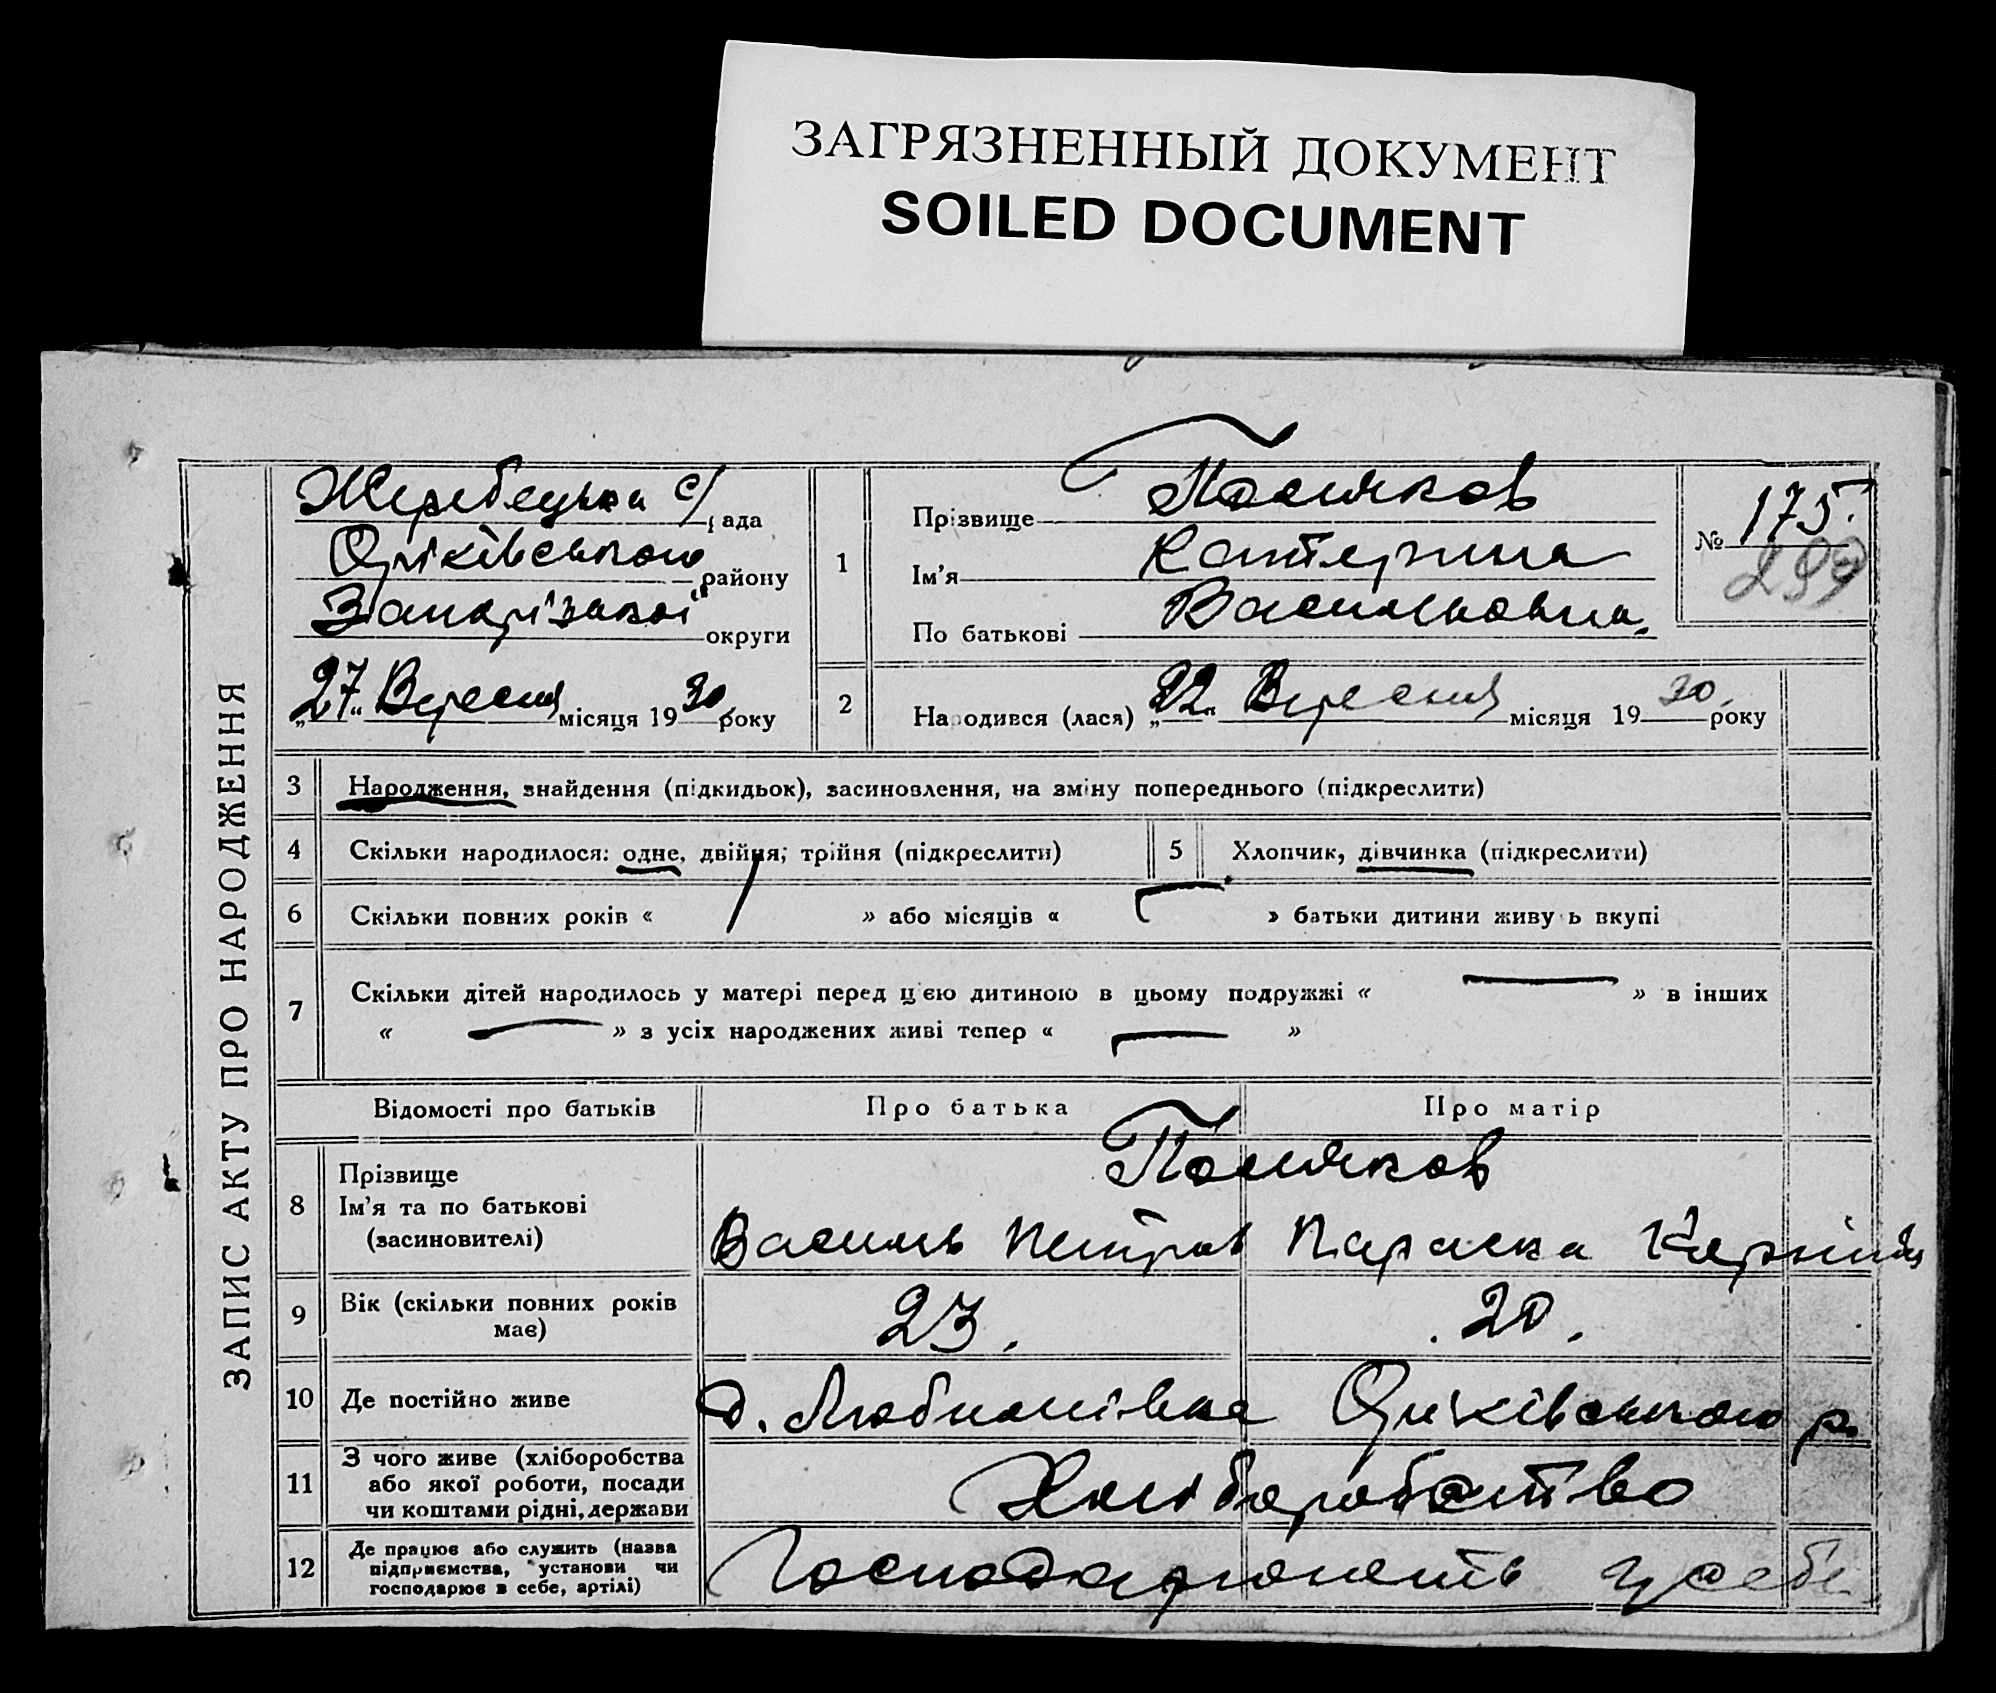 ЗАГРЯЗНЕННЫЙ ДОКУМЕНТ
SOILED DOCUMENT
ЗАПИС АКТУ ПРО НАРОДЖЕННЯ
Жеребецька с/рада
Оріхівського району
Запорізької округи
„27“ Вересня місяця 1930 року
1
Прізвище Поляков
Ім'я Катерина
По батькові Васильовна.
№ 175.
2
Народився (лася) „22“ Вересня місяця 1930. року
3 Народження, знайдення (підкидьок), засиновлення, на зміну попереднього (підкреслити)
4 Скільки народилося: одне, двійня; трійня (підкреслити)
5 Хлопчик, дівчинка (підкреслити)
6 Скільки повних років « » або місяців « » батьки дитини живуть вкупі
7 Скільки дітей народилось у матері перед цією дитиною в цьому подружжі « — » в інших
« — » з усіх народжених живі тепер « — »
Відомості про батьків Про батька Про матір
8 Прізвище
Ім'я та по батькові
(засиновителі)
Поляков
Василь Петров Параска
9 Вік (скільки повних років
має)
23. 20.
10 Де постійно живе
с. Любимівка Оріхівського р.
11 З чого живе (хліборобства
або якої роботи, посади
чи коштами рідні, держави
Хліборобство
12 Де працює або служить (назва
підприємства, установи чи
господарює в себе, артілі)
Господарюють у себе